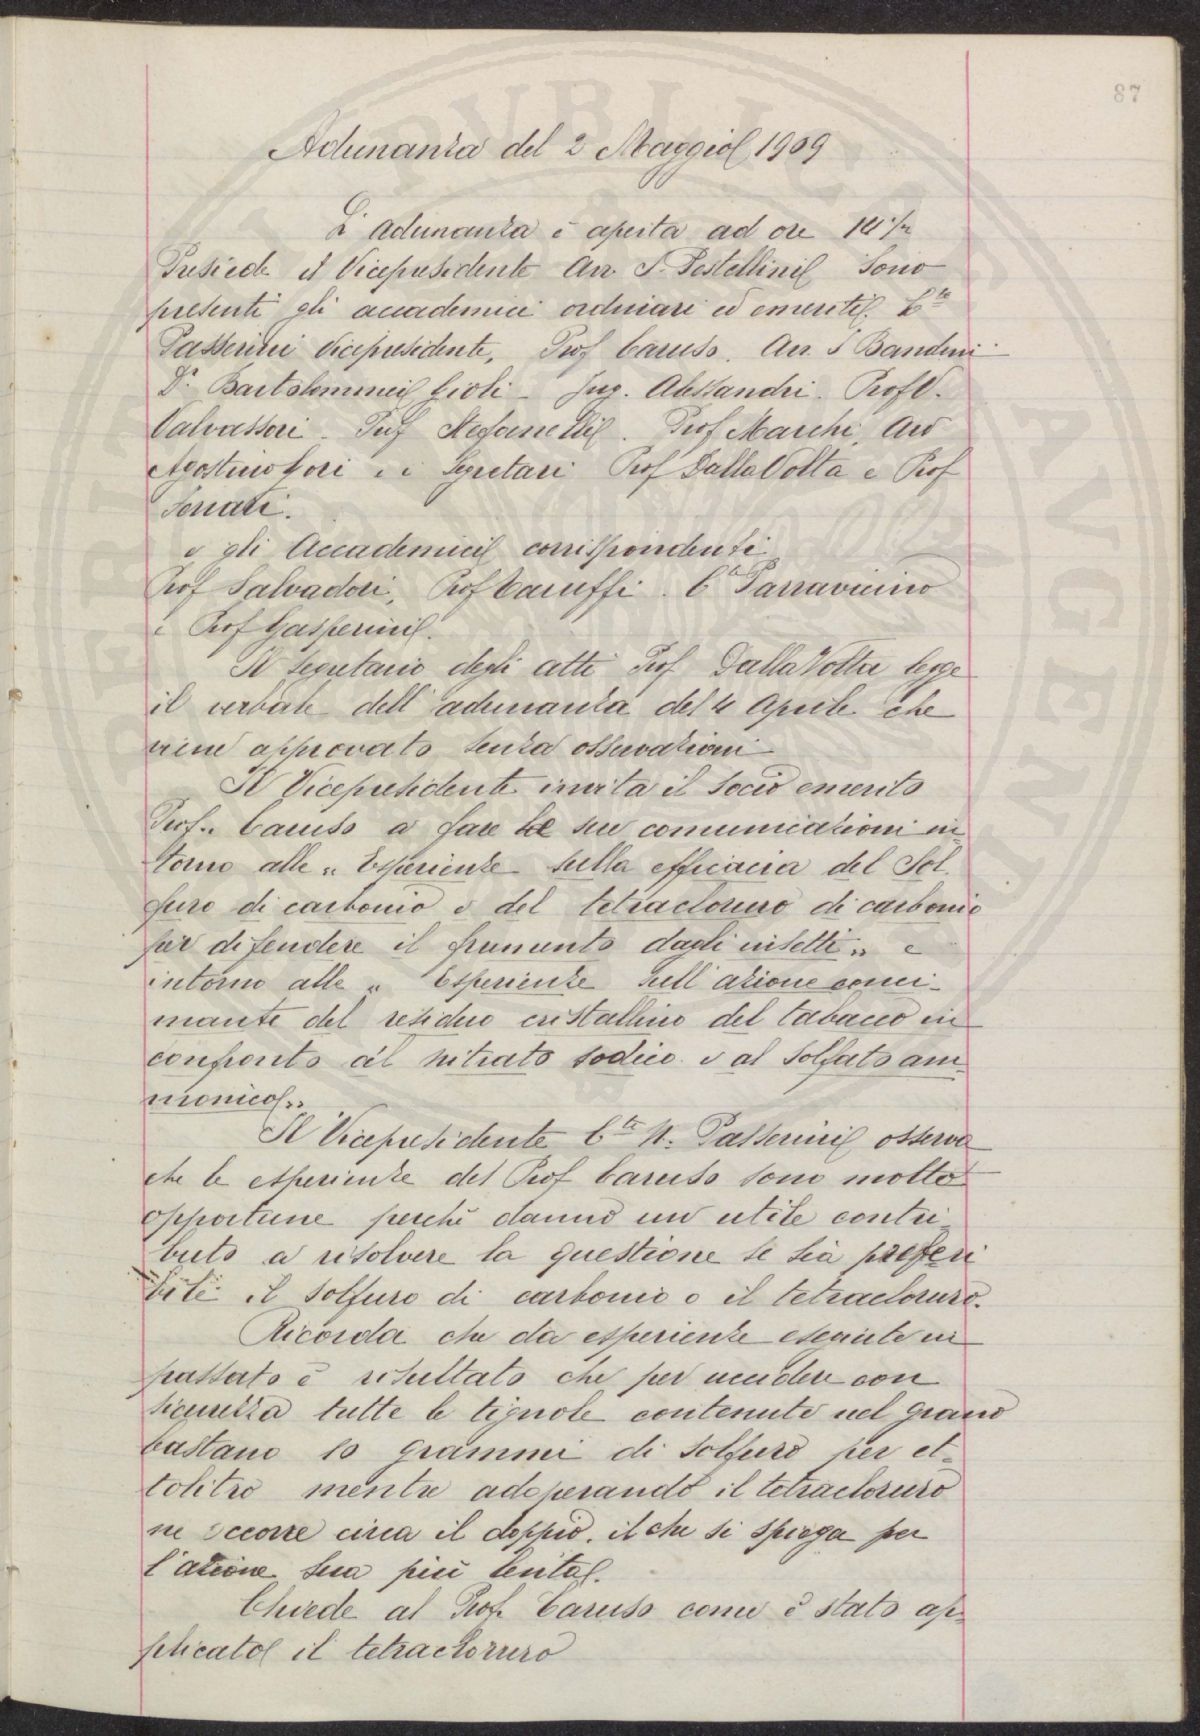 87
Adunanza del 2 Maggio 1909
L'adunanza è aperta ad ore 14 1/2
Presiede il Vicepresidente Avv. Pestellini Sono
presenti gli accademici ordinari ed emeriti. Cte
Passerini Vicepresidente, Prof Caruso. Avv. Bandini
Dr. Bartolommei Gioli - Ing. Alessandri. Prof V.
Valvassori. Prof Stefanelli. Prof Marchi, Avv
Agostino Gori e i Segretari Prof Dalla Volta e Prof
Serrati.
e gli Accademici corrispondenti
Prof Salvadori, Prof Baruffi. Cte Parravicino
e Prof Gasperini.
Il Segretario degli atti Prof Dalla Volta legge
il verbale dell'adunanza del 4 Aprile che
viene approvato senza osservazioni
Il Vicepresidente invita il socio emerito
Prof. Caruso a fare le sue comunicazioni in
torno alle „ Esperienze sulla efficacia del Sol
furo di carbonio e del tetracloruro di carbonio
per difendere il frumento dagli insetti „ e
intorno alle „ Esperienze sull'azione conci-
mante del residuo cristallino del tabacco in
confronto al nitrato sodico e al solfato am-
monico„
Il Vicepresidente Cte N. Passerini osserva
che le esperienze del Prof Caruso sono molto
opportune perchè danno un utile contri
buto a risolvere la questione se sia preferi
bile il solfuro di carbonio o il tetracloruro.
Ricorda che da esperienze eseguite in
passato è risultato che per uccidere con
sicurezza tutte le tignole contenute nel grano
bastano 10 grammi di solfuro per et-
tolitro mentre adoperando il tetracloruro
ne occorre circa il doppio. il che si spiega per
l'azione sua più lenta.
Chiede al Prof. Caruso come è stato ap-
plicato il tetraclorruro